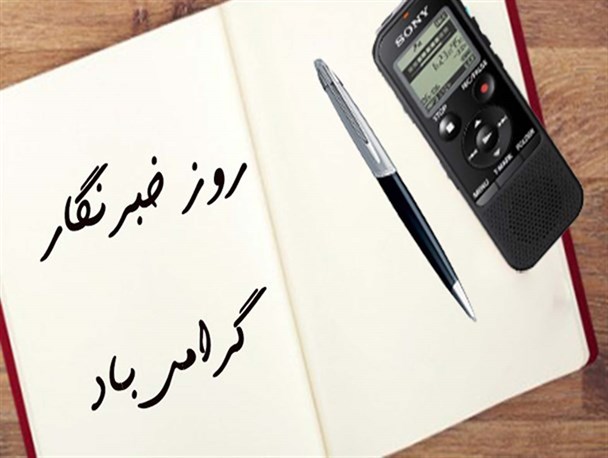 روز خبرنگار
گرامی باد
SONY
1:23:45
STOP
REC/PAUSE
MENU
T-MARK
FOLDER